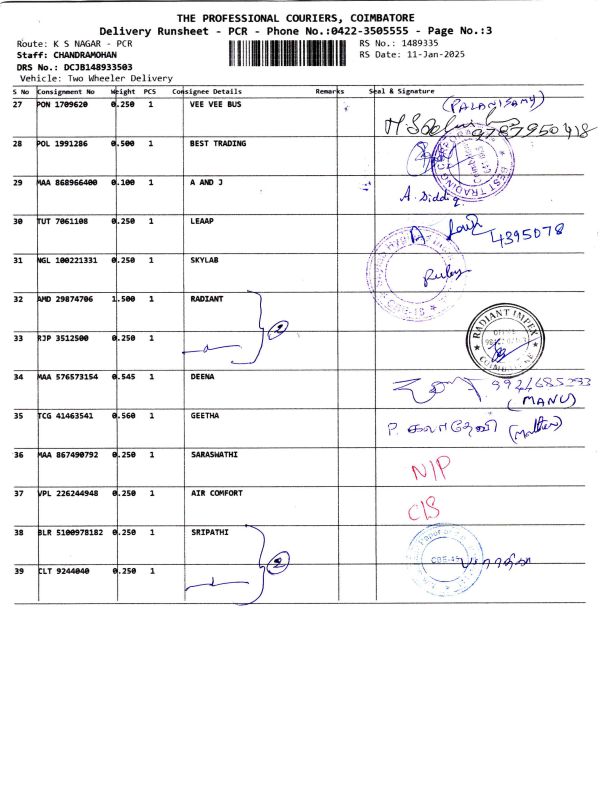 THE PROFESSIONAL COURIERS, COIMBATORE
Delivery Runsheet - PCR - Phone No.:0422-3505555 - Page No.:3
Route: K S NAGAR - PCR RS No.: 1489335
Staff: CHANDRAMOHAN RS Date: 11-Jan-2025
DRS No.: DCJB148933503
Vehicle: Two Wheeler Delivery
S No Consignment No Weight PCS Consignee Details Remarks Seal & Signature
27 PON 1709620 0.250 1 VEE VEE BUS (PALANISAMY)
9787950418
28 POL 1991286 0.500 1 BEST TRADING
BEST TRADING
29 MAA 868966400 0.100 1 A AND J A. Siddiq
30 TUT 7061108 0.250 1 LEAAP
4395078
31 NGL 100221331 0.250 1 SKYLAB Ruby
32 AMD 29874706 1.500 1 RADIANT 2
RADIANT IMPEX
COIMBATORE
33 RJP 3512500 0.250 1
34 MAA 576573154 0.545 1 DEENA 9924685293
(MANU)
35 TCG 41463541 0.560 1 GEETHA P. (Mother)
36 MAA 867490792 0.250 1 SARASWATHI N/P
37 VPL 226244948 0.250 1 AIR COMFORT C/S
38 BLR 5100978182 0.250 1 SRIPATHI 2
CBE-45
39 CLT 9244040 0.250 1